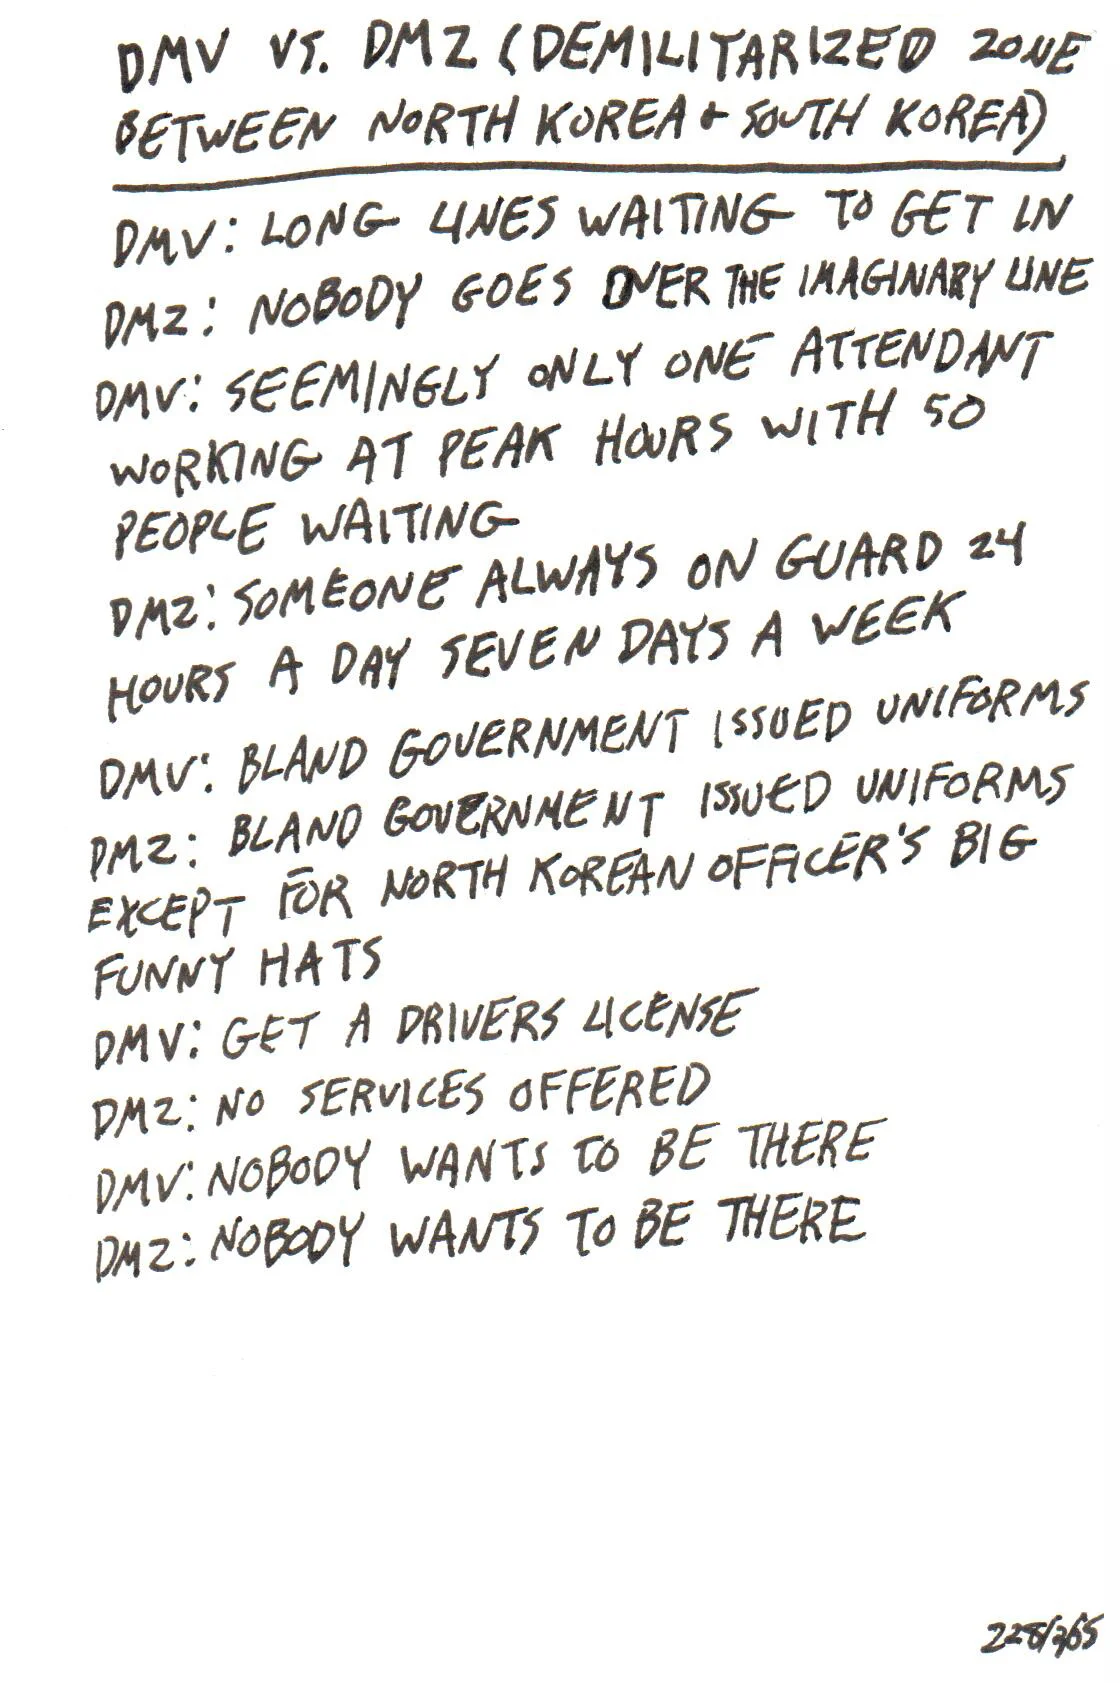 DMV VS. DMZ (DEMILITARIZED ZONE
BETWEEN NORTH KOREA + SOUTH KOREA)
DMV: LONG LINES WAITING TO GET IN
DMZ: NOBODY GOES OVER THE IMAGINARY LINE
DMV: SEEMINGLY ONLY ONE ATTENDANT
WORKING AT PEAK HOURS WITH 50
PEOPLE WAITING
DMZ: SOMEONE ALWAYS ON GUARD 24
HOURS A DAY SEVEN DAYS A WEEK
DMV: BLAND GOVERNMENT ISSUED UNIFORMS
DMZ: BLAND GOVERNMENT ISSUED UNIFORMS
EXCEPT FOR NORTH KOREAN OFFICER'S BIG
FUNNY HATS
DMV: GET A DRIVERS LICENSE
DMZ: NO SERVICES OFFERED
DMV: NOBODY WANTS TO BE THERE
DMZ: NOBODY WANTS TO BE THERE
228/365